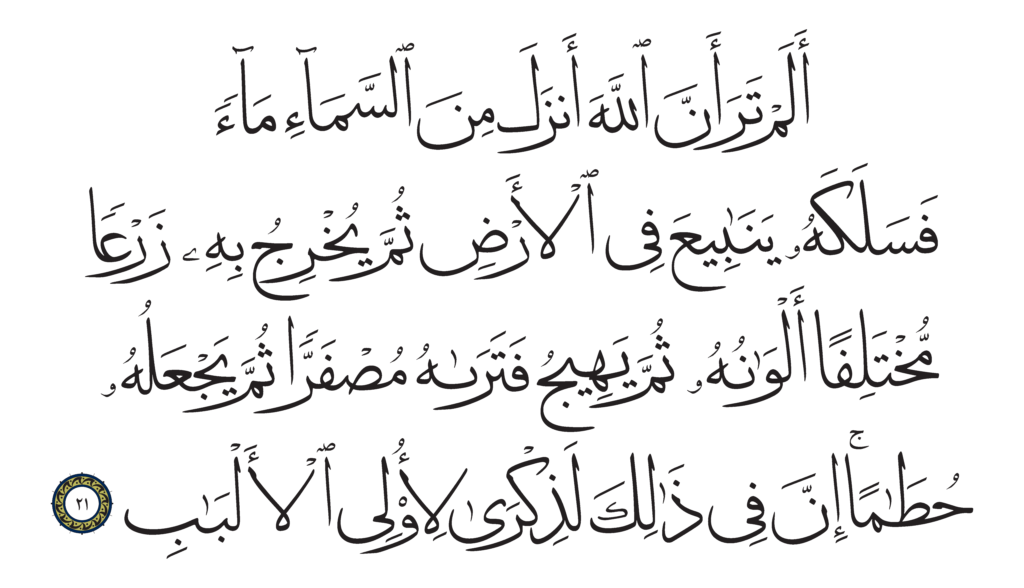 أَلَمْ تَرَ أَنَّ ٱللَّهَ أَنزَلَ مِنَ ٱلسَّمَآءِ مَآءً
فَسَلَكَهُۥ يَنَٰبِيعَ فِى ٱلْأَرْضِ ثُمَّ يُخْرِجُ بِهِۦ زَرْعًا
مُّخْتَلِفًا أَلْوَٰنُهُۥ ثُمَّ يَهِيجُ فَتَرَىٰهُ مُصْفَرًّا ثُمَّ يَجْعَلُهُۥ
حُطَٰمًا ۚ إِنَّ فِى ذَٰلِكَ لَذِكْرَىٰ لِأُو۟لِى ٱلْأَلْبَٰبِ ٢١